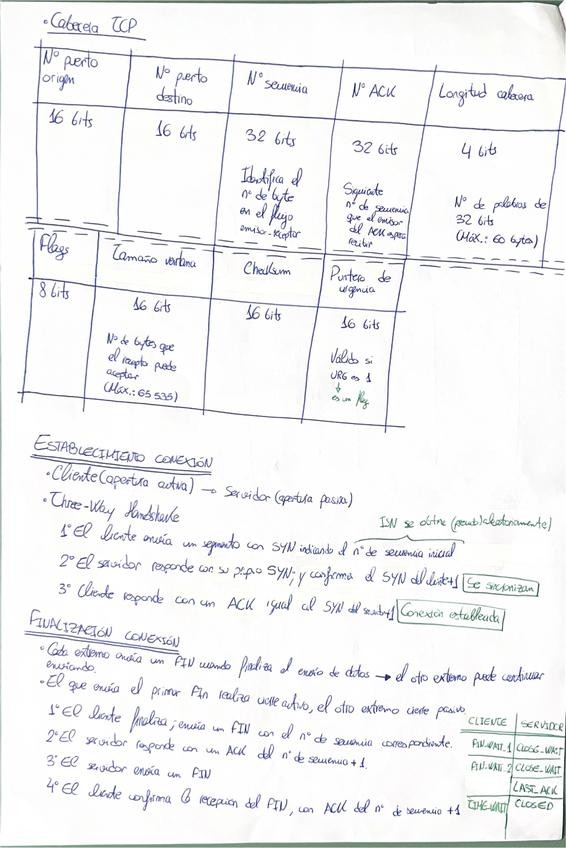 • Cabecera TCP
Nº puerto
origen
Nº puerto
destino
Nº secuencia
Nº ACK
Longitud cabecera
16 bits
16 bits
32 bits
Identifica el
nº de byte
en el flujo
emisor-receptor
32 bits
Siguiente
nº de secuencia
que el emisor
del ACK espera
recibir
4 bits
Nº de palabras de
32 bits
(Máx.: 60 bytes)
Flags
Tamaño ventana
Checksum
Puntero de
urgencia
8 bits
16 bits
Nº de bytes que
el receptor puede
aceptar
(Máx.: 65 535)
16 bits
16 bits
Válido si
URG es 1
↓
es un flag
ESTABLECIMIENTO CONEXIÓN
• Cliente (apertura activa) → Servidor (apertura pasiva)
• Three-Way Handshake
ISN se obtiene (pseudo)aleatoriamente)
1º El cliente envía un segmento con SYN indicando el nº de secuencia inicial
2º El servidor responde con su propio SYN; y confirma el SYN del cliente+1 Se sincronizan
3º Cliente responde con un ACK igual al SYN del servidor+1 Conexión establecida
FINALIZACIÓN CONEXIÓN
• Cada extremo envía un FIN cuando finaliza el envío de datos → el otro extremo puede continuar
enviando.
• El que envía el primer Fin realiza cierre activo, el otro extremo cierre pasivo
1º El cliente finaliza; envía un FIN con el nº de secuencia correspondiente.
2º El servidor responde con un ACK del nº de secuencia +1.
3º El servidor envía un FIN
4º El cliente confirma la recepción del FIN, con ACK del nº de secuencia +1
CLIENTE SERVIDOR
FIN_WAIT_1 CLOSE_WAIT
FIN_WAIT_2 CLOSE_WAIT
LAST_ACK
TIME_WAIT CLOSED